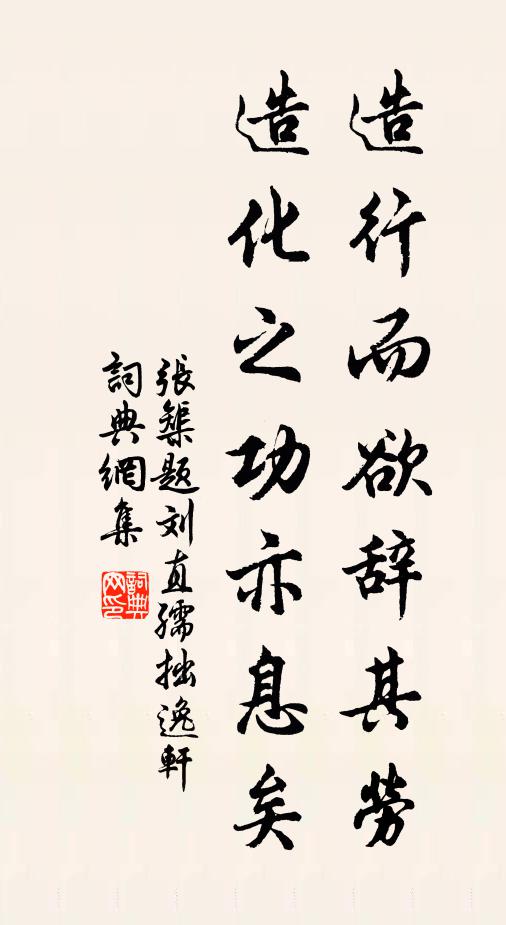 造行而欲辞其勞
造化之功亦息矣
張榘题刘直孺拙逸軒
詞典網集
詞典网印